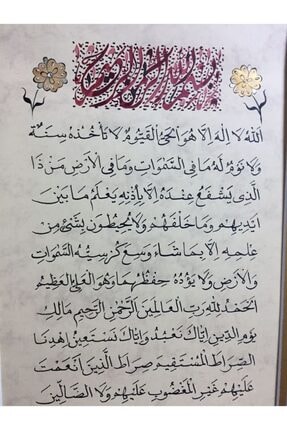 بسم الله الرحمن الرحيم
الله لا اله الا هو الحي القيوم لا تأخذه سنة
ولا نوم له ما في السموات وما في الارض من ذا
الذي يشفع عنده الا بإذنه يعلم ما بين
ايديهم وما خلفهم ولا يحيطون بشئ من
علمه الا بما شاء وسع كرسيه السموات
والارض ولا يؤده حفظهما وهو العلي العظيم
الحمد لله رب العالمين الرحمن الرحيم مالك
يوم الدين اياك نعبد واياك نستعين اهدنا
الصراط المستقيم صراط الذين انعمت
عليهم غير المغضوب عليهم ولا الضالين